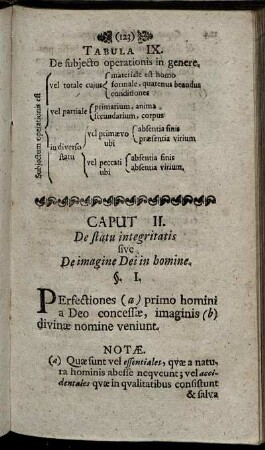 (123)
TABULA IX.
De subjecto operationis in genere,
Subjectum operationis est
vel totale cujus
materiale est homo
formale, quatenus beandus
conditiones
vel partiale
primarium, anima
secundarium, corpus
in diverso statu
vel primævo ubi
absentia finis
præsentia virium
vel peccati ubi
absentia finis
absentia virium.
CAPUT II.
De statu integritatis
sive
De imagine Dei in homine.
§. I.
PErfectiones (a) primo homini
a Deo concessæ, imaginis (b)
divinæ nomine veniunt.
NOTÆ.
(a) Quæ sunt vel essentiales, qvæ a natu-
ra hominis abesse neqveunt; vel acci-
dentales qvæ in qvalitatibus consistunt
& salva